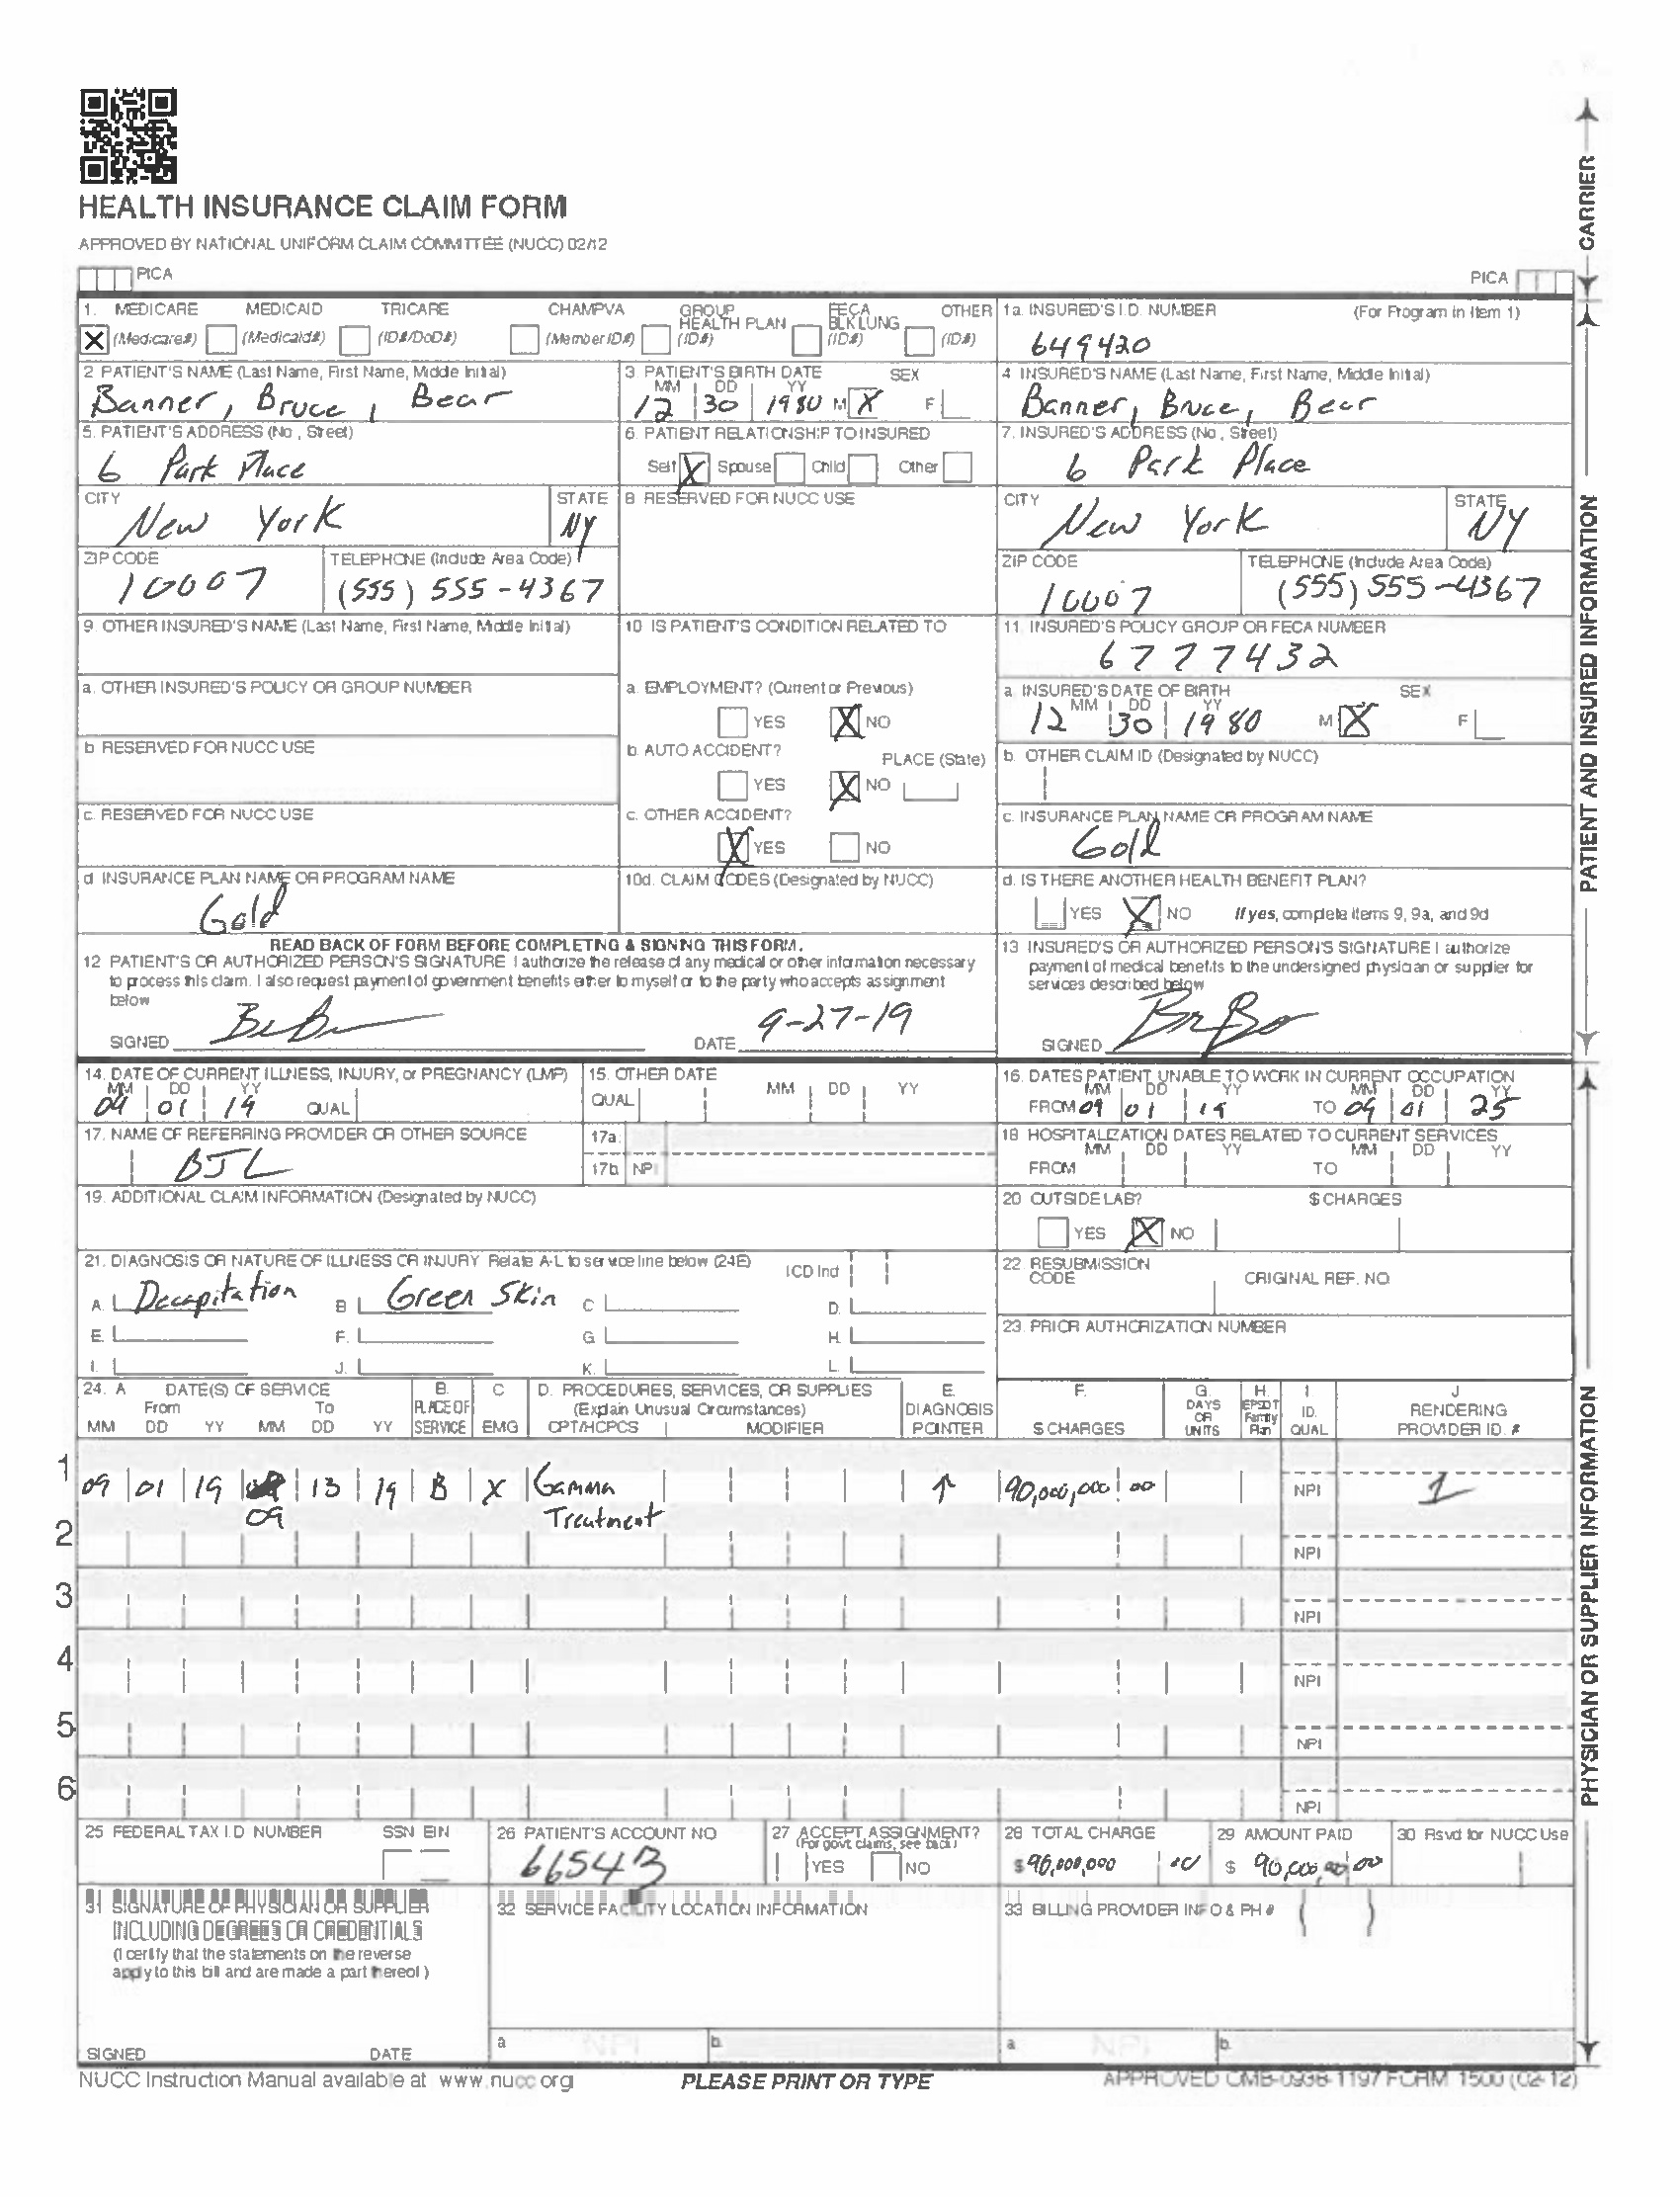 HEALTH INSURANCE CLAIM FORM
APPROVED BY NATIONAL UNIFORM CLAIM COMMITTEE (NUCC) 02/12
PICA PICA
CARRIER
1. MEDICARE MEDICAID TRICARE CHAMPVA GROUP HEALTH PLAN FECA BLK LUNG OTHER
X (Medicare#) (Medicaid#) (ID#/DoD#) (Member ID#) (ID#) (ID#) (ID#)
1a. INSURED'S I.D. NUMBER (For Program in Item 1)
649420
2 PATIENT'S NAME (Last Name, First Name, Middle Initial)
Banner, Bruce, Bear
3. PATIENT'S BIRTH DATE SEX
MM DD YY
12 30 1980 M X F
4 INSURED'S NAME (Last Name, First Name, Middle Initial)
Banner, Bruce, Bear
5. PATIENT'S ADDRESS (No., Street)
6 Park Place
6. PATIENT RELATIONSHIP TO INSURED
Self X Spouse Child Other
7. INSURED'S ADDRESS (No., Street)
6 Park Place
CITY STATE
New York NY
8 RESERVED FOR NUCC USE
CITY STATE
New York NY
ZIP CODE TELEPHONE (Include Area Code)
10007 (555) 555-4367
ZIP CODE TELEPHONE (Include Area Code)
10007 (555) 555-4367
9. OTHER INSURED'S NAME (Last Name, First Name, Middle Initial)
10 IS PATIENT'S CONDITION RELATED TO
11. INSURED'S POLICY GROUP OR FECA NUMBER
6777432
a. OTHER INSURED'S POLICY OR GROUP NUMBER
a. EMPLOYMENT? (Current or Previous)
YES X NO
a. INSURED'S DATE OF BIRTH SEX
MM DD YY
12 30 1980 M X F
b RESERVED FOR NUCC USE
b. AUTO ACCIDENT? PLACE (State)
YES X NO
b. OTHER CLAIM ID (Designated by NUCC)
c. RESERVED FOR NUCC USE
c. OTHER ACCIDENT?
X YES NO
c. INSURANCE PLAN NAME OR PROGRAM NAME
Gold
d INSURANCE PLAN NAME OR PROGRAM NAME
Gold
10d. CLAIM CODES (Designated by NUCC)
d. IS THERE ANOTHER HEALTH BENEFIT PLAN?
YES X NO If yes, complete items 9, 9a, and 9d
PATIENT AND INSURED INFORMATION
READ BACK OF FORM BEFORE COMPLETING & SIGNING THIS FORM.
12 PATIENT'S OR AUTHORIZED PERSON'S SIGNATURE I authorize the release of any medical or other information necessary
to process this claim. I also request payment of government benefits either to myself or to the party who accepts assignment
below
SIGNED DATE 9-27-19
13 INSURED'S OR AUTHORIZED PERSON'S SIGNATURE I authorize
payment of medical benefits to the undersigned physician or supplier for
services described below
SIGNED
14. DATE OF CURRENT ILLNESS, INJURY, or PREGNANCY (LMP)
MM DD YY
09 01 19 QUAL
15. OTHER DATE MM DD YY
QUAL
16. DATES PATIENT UNABLE TO WORK IN CURRENT OCCUPATION
MM DD YY MM DD YY
FROM 09 01 19 TO 09 01 25
17. NAME OF REFERRING PROVIDER OR OTHER SOURCE
BJL
17a.
17b NPI
18 HOSPITALIZATION DATES RELATED TO CURRENT SERVICES
MM DD YY MM DD YY
FROM TO
19. ADDITIONAL CLAIM INFORMATION (Designated by NUCC)
20 OUTSIDE LAB? $ CHARGES
YES X NO
21. DIAGNOSIS OR NATURE OF ILLNESS OR INJURY Relate A-L to service line below (24E) ICD Ind
A. Decapitation B Green Skin C D.
E. F. G H.
I. J. K. L.
22 RESUBMISSION CODE ORIGINAL REF. NO
23. PRIOR AUTHORIZATION NUMBER
24. A DATE(S) OF SERVICE B. C D. PROCEDURES, SERVICES, OR SUPPLIES E. F. G. H. I J
From To PLACE OF (Explain Unusual Circumstances) DIAGNOSIS DAYS OR EPSDT Family ID. RENDERING
MM DD YY MM DD YY SERVICE EMG CPT/HCPCS MODIFIER POINTER $ CHARGES UNITS Plan QUAL PROVIDER ID. #
1 09 01 19 09 13 19 B X Gamma Treatment ↑ 90,000,000 00 NPI 1
2 NPI
3 NPI
4 NPI
5 NPI
6 NPI
25 FEDERAL TAX I.D NUMBER SSN EIN
26 PATIENT'S ACCOUNT NO
66543
27 ACCEPT ASSIGNMENT?
(For govt. claims, see back)
YES NO
28 TOTAL CHARGE
$ 90,000,000 00
29 AMOUNT PAID
$ 90,000,000 00
30 Rsvd for NUCC Use
31 SIGNATURE OF PHYSICIAN OR SUPPLIER
INCLUDING DEGREES OR CREDENTIALS
(I certify that the statements on the reverse
apply to this bill and are made a part thereof)
SIGNED DATE
32 SERVICE FACILITY LOCATION INFORMATION
a NPI b.
33 BILLING PROVIDER INFO & PH # ( )
a. NPI b.
PHYSICIAN OR SUPPLIER INFORMATION
NUCC Instruction Manual available at www.nucc.org
PLEASE PRINT OR TYPE
APPROVED OMB-0938-1197 FORM 1500 (02-12)